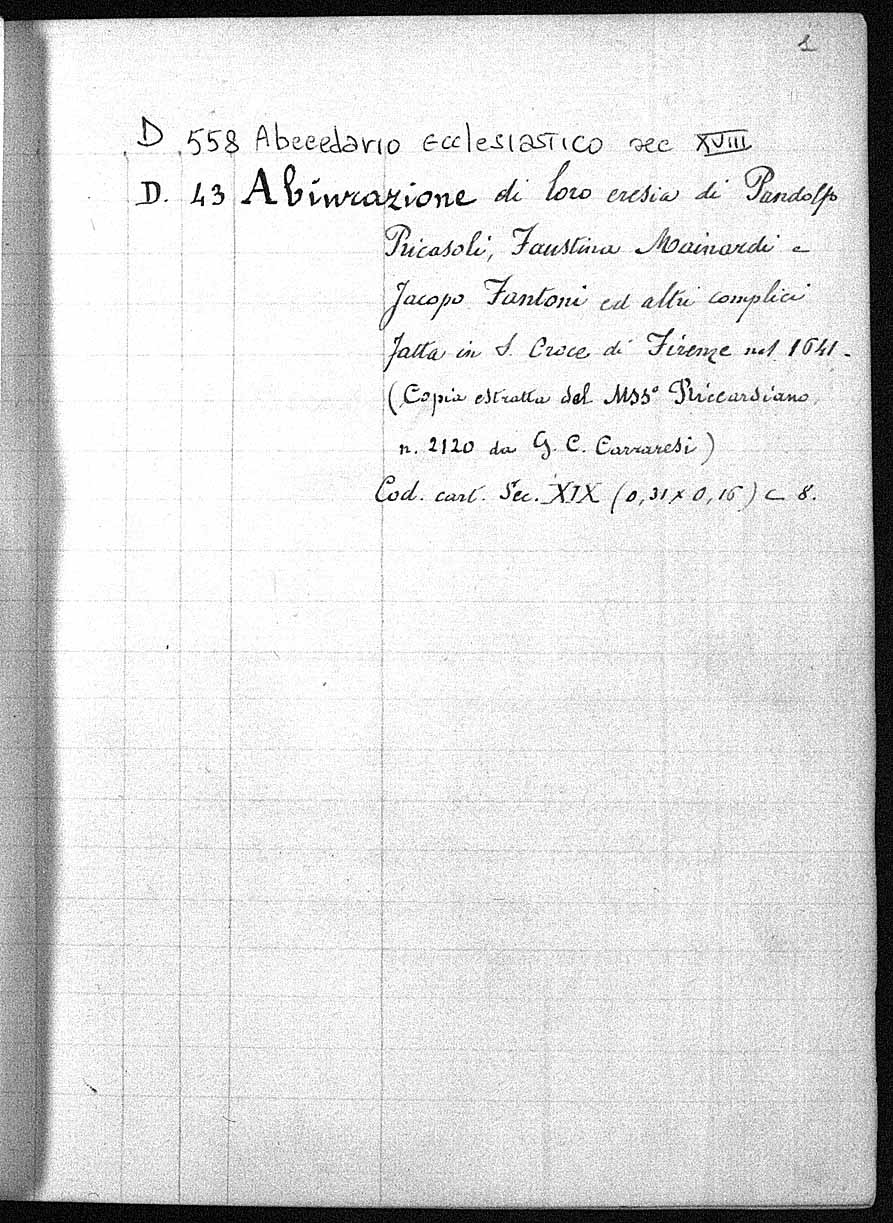 1
D 558 Abecedario Ecclesiastico sec XVIII
D. 43 Abiurazione di loro eresia di Pandolfo
Ricasoli, Faustina Mainardi e
Jacopo Fantoni ed altri complici
fatta in S. Croce di Firenze nel 1641.
(Copia estratta dal Mss° Riccardiano
n. 2120 da G. C. Carraresi)
Cod. cart. Sec. XIX (0,31 x 0,16) c 8.